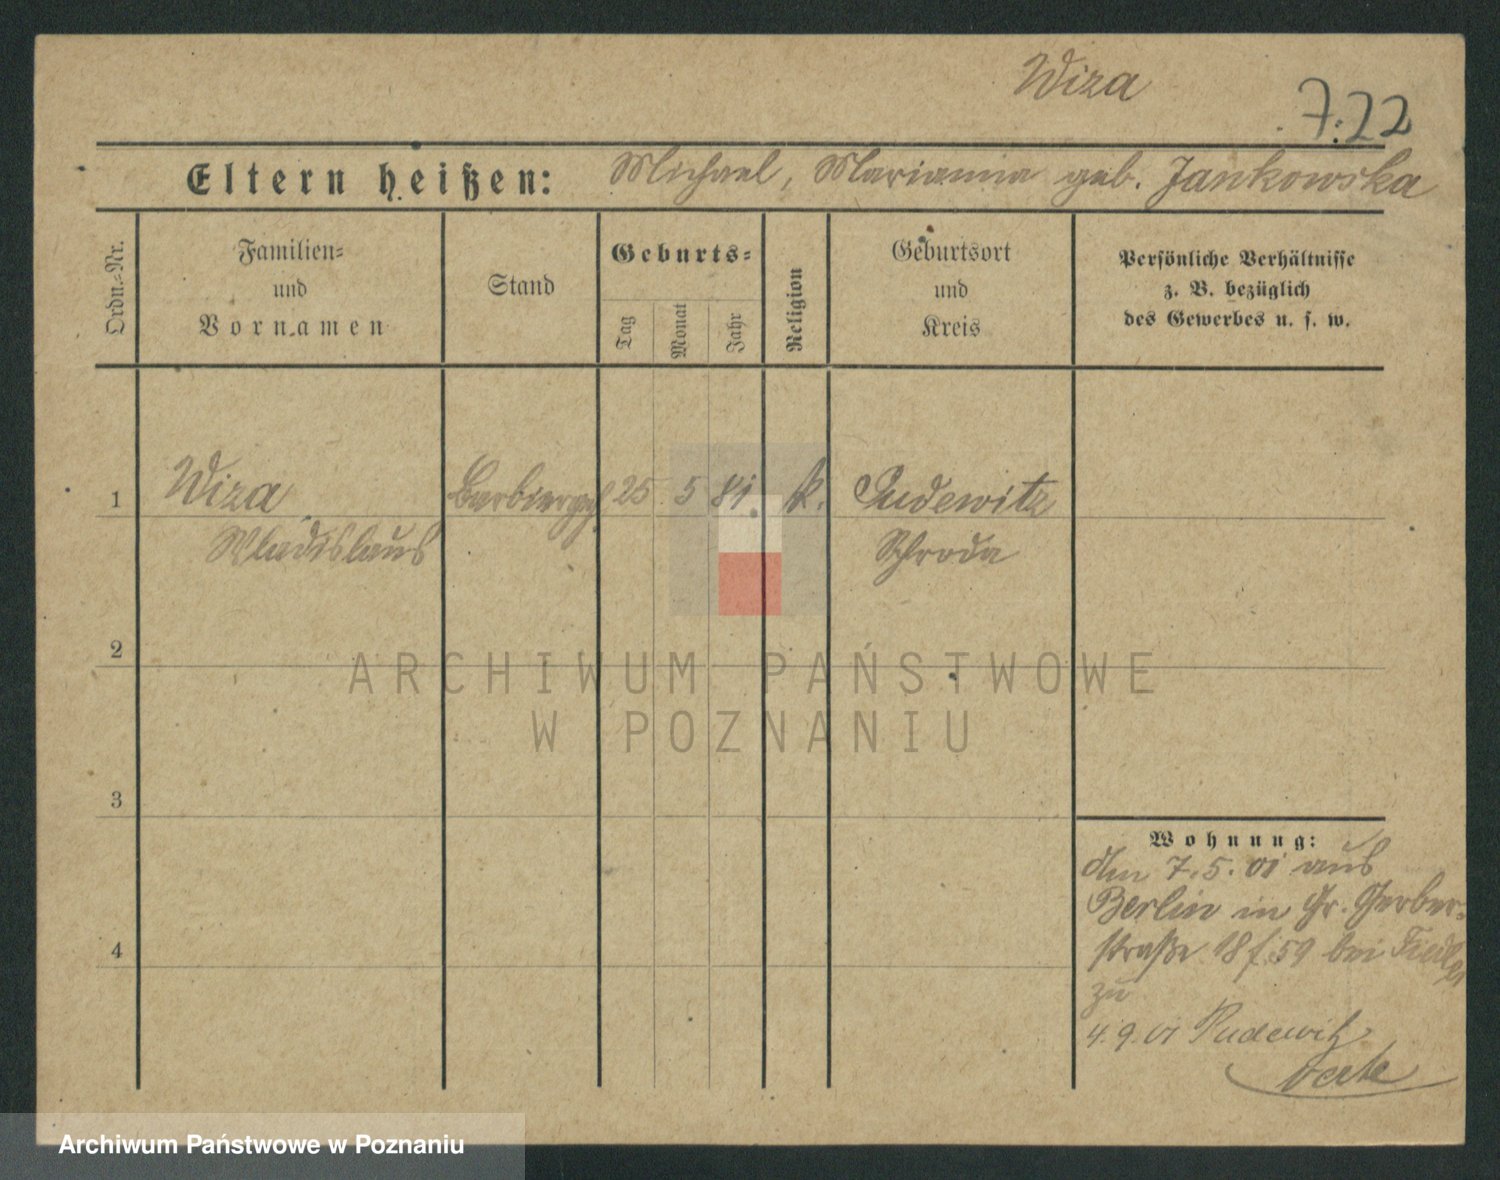 Wiza
7.22
Eltern heißen: Michael, Marianna geb. Jankowska
Ordn.-Nr.
Familien-
und
Vornamen
Stand
Geburts-
Tag
Monat
Jahr
Religion
Geburtsort
und
Kreis
Persönliche Verhältnisse
z. B. bezüglich
des Gewerbes u. s. w.
1 Wiza Barbiergh. 25 5 81 k. Pudewitz
Wladislaus Schroda
2
3
4
Wohnung:
den 7.5.01 aus
Berlin in Gr. Gerber-
straße 18 f. 59 bei Fiedler
zu
4.9.01 Pudewitz
ARCHIWUM PAŃSTWOWE
W POZNANIU
Archiwum Państwowe w Poznaniu